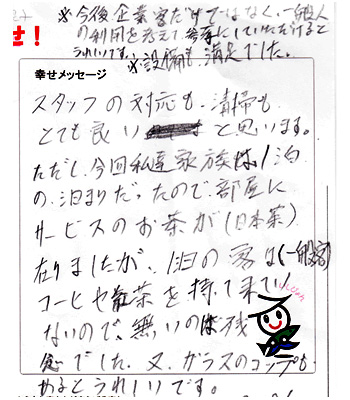 ※今後企業客だけではなく、一般人
の利用を考えて参考にしていただけると
うれしいです。※設備も満足でした。
せ!
幸せメッセージ
スタッフの対応も、清掃も
とても良い と思います。
ただし、今回私達家族は1泊
の泊まりだったので、部屋に
サービスのお茶が(日本茶)
在りましたが、1泊の客は(一般客)
コーヒや紅茶を持って来てい
ないので、無いのは残
念でした。又、ガラスのコップも
あるとうれしいです。